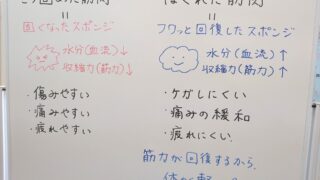 こり固まった筋肉
=
固くなったスポンジ
水分(血流)↓
収縮力(筋力)↓
・傷みやすい
・痛みやすい
・疲れやすい
ほぐれた筋肉
=
フワッと回復したスポンジ
水分(血流)↑
収縮力(筋力)↑
・ケガしにくい
・痛みの緩和
・疲れにくい
筋力が回復するから、